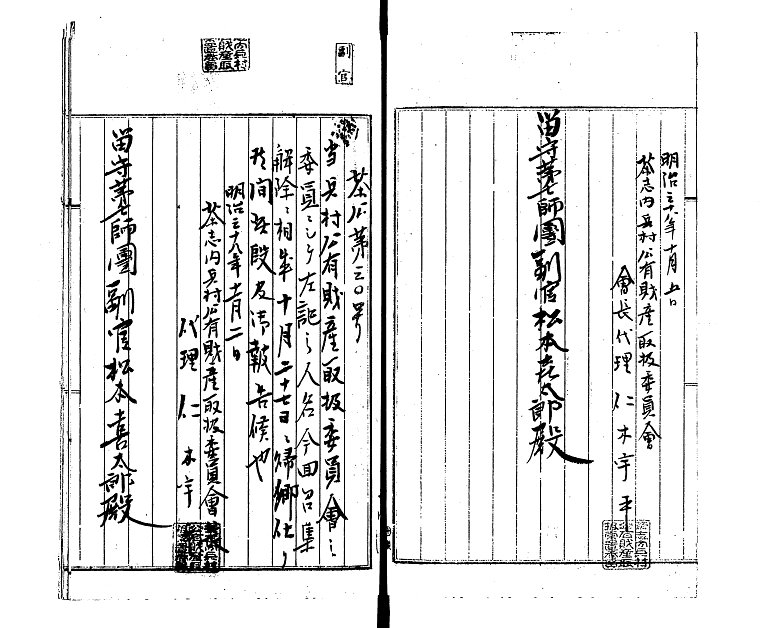 明治三十八年十月五日
茶志内兵村公有財産取扱委員會
會長代理 仁木宇平
留守第七師團副官松本喜太郎殿
副官
茶公第三〇号
当兵村公有財産取扱委員會之
委員ニシテ左記之人名今回召集
解除ニ相成十月二十七日ニ帰郷仕リ
候間此段及御報告候也
明治三十八年十一月二日
茶志内兵村公有財産取扱委員會
代理 仁木宇
留守第七師團副官松本喜太郎殿